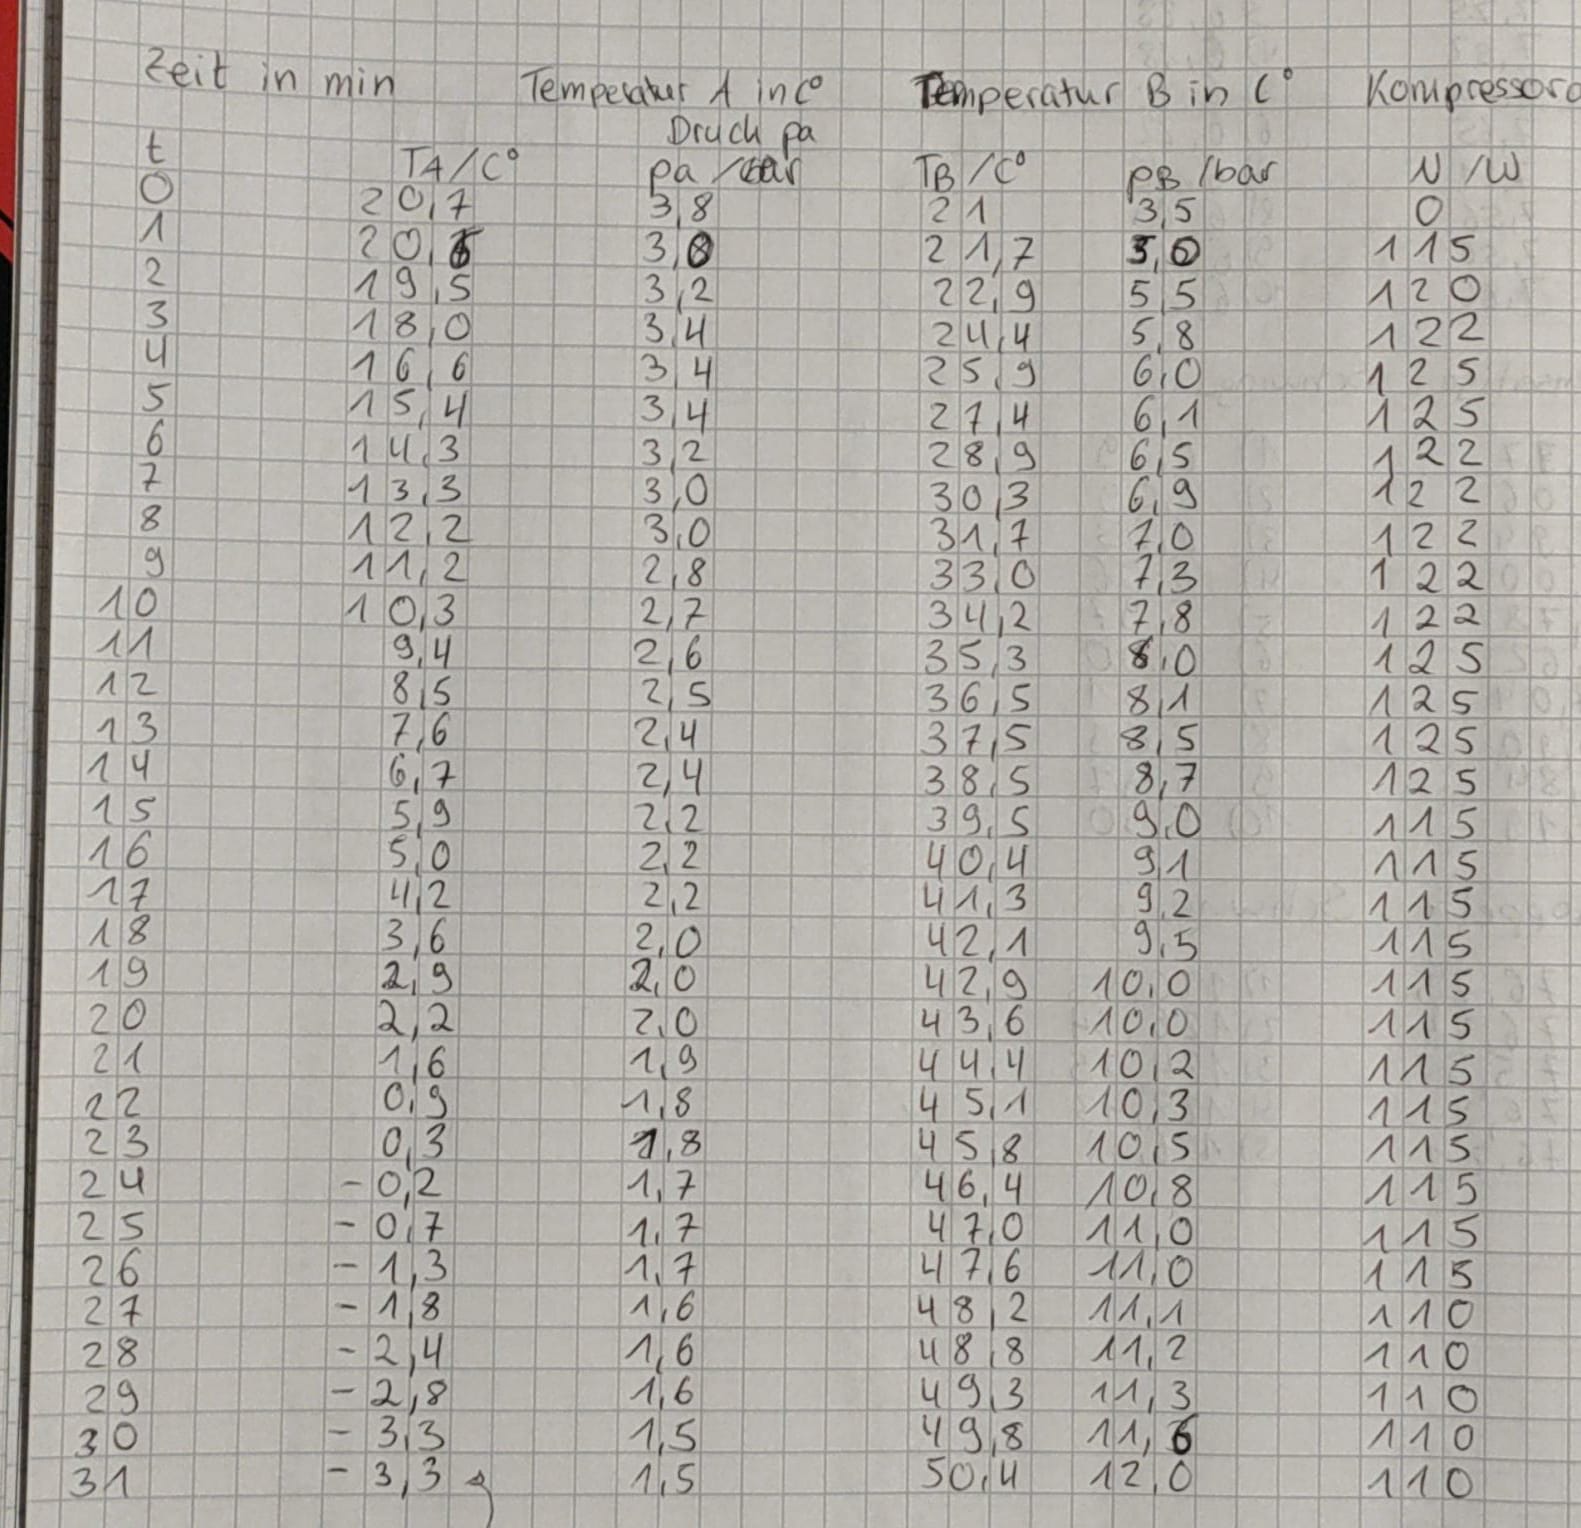 Zeit in min Temperatur A in C° Temperatur B in C° Kompressor
Druck pa
t TA/C° pa/bar TB/C° pB/bar N/W
0 20,7 3,8 21 3,5 0
1 20,6 3,0 21,7 5,0 115
2 19,5 3,2 22,9 5,5 120
3 18,0 3,4 24,4 5,8 122
4 16,6 3,4 25,9 6,0 125
5 15,4 3,4 27,4 6,1 125
6 14,3 3,2 28,9 6,5 122
7 13,3 3,0 30,3 6,9 122
8 12,2 3,0 31,7 7,0 122
9 11,2 2,8 33,0 7,3 122
10 10,3 2,7 34,2 7,8 122
11 9,4 2,6 35,3 8,0 125
12 8,5 2,5 36,5 8,1 125
13 7,6 2,4 37,5 8,5 125
14 6,7 2,4 38,5 8,7 125
15 5,9 2,2 39,5 9,0 115
16 5,0 2,2 40,4 9,1 115
17 4,2 2,2 41,3 9,2 115
18 3,6 2,0 42,1 9,5 115
19 2,9 2,0 42,9 10,0 115
20 2,2 2,0 43,6 10,0 115
21 1,6 1,9 44,4 10,2 115
22 0,9 1,8 45,1 10,3 115
23 0,3 1,8 45,8 10,5 115
24 -0,2 1,7 46,4 10,8 115
25 -0,7 1,7 47,0 11,0 115
26 -1,3 1,7 47,6 11,0 115
27 -1,8 1,6 48,2 11,1 110
28 -2,4 1,6 48,8 11,2 110
29 -2,8 1,6 49,3 11,3 110
30 -3,3 1,5 49,8 11,6 110
31 -3,3 1,5 50,4 12,0 110